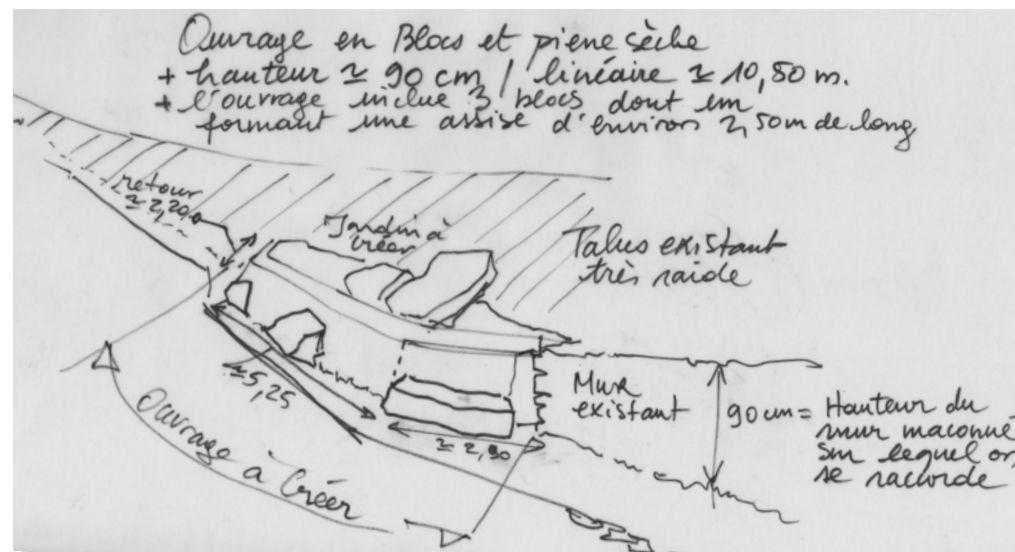 Ouvrage en Blocs et pierre sèche
+ hauteur ≃ 90 cm / linéaire ≃ 10,50 m.
+ l'ouvrage inclue 3 blocs dont un
formant une assise d'environ 2,50m de long
retour
≃ 2,20
Jardin à
créer
Talus existant
très raide
≃ 5,25
Mur
existant
90 cm = Hauteur du
mur maconné
sur lequel on
se raccorde
≃ 2,90
Ouvrage à Créer